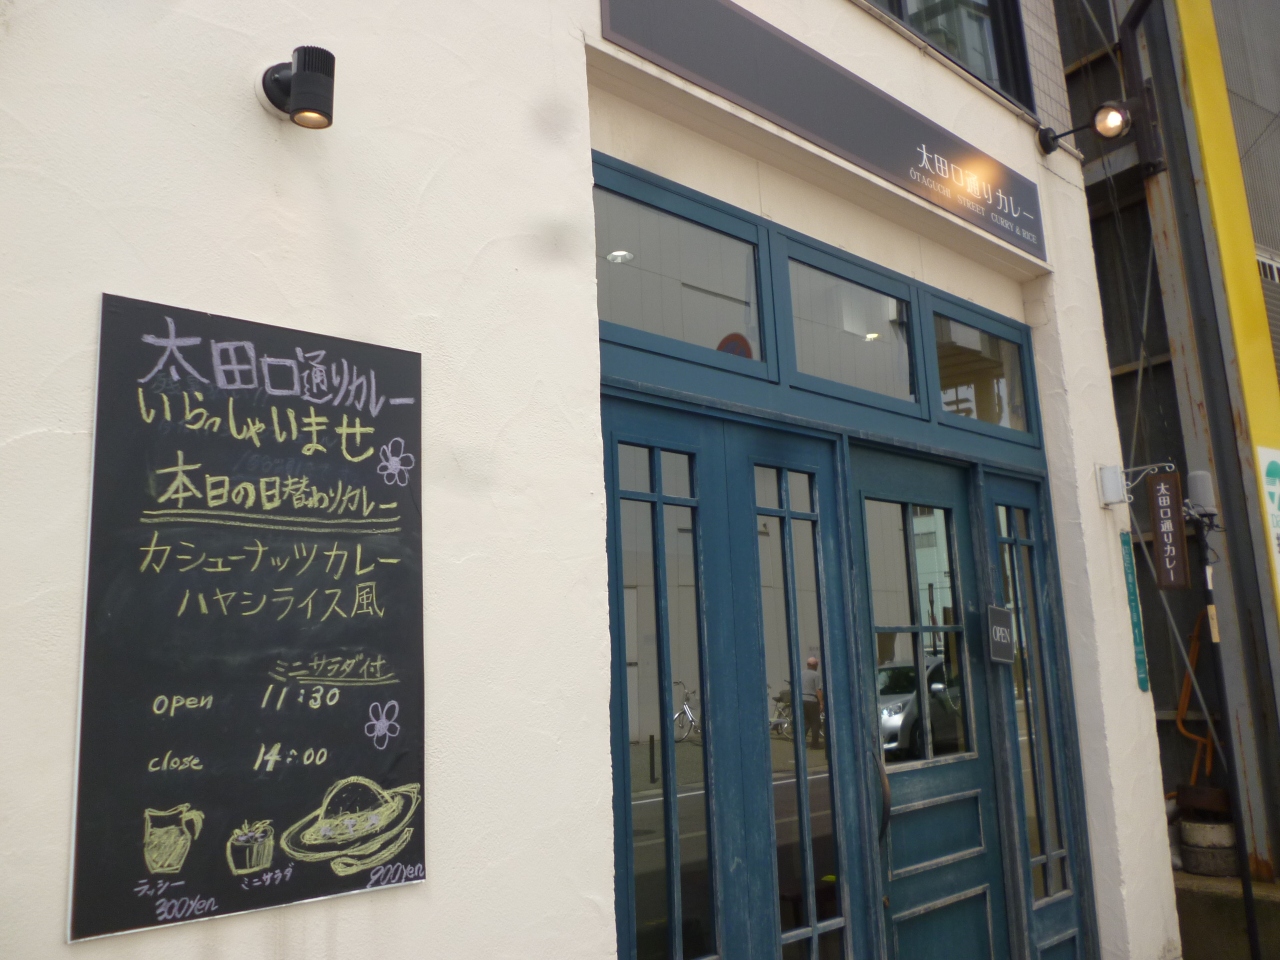 太田口通りカレー
いらっしゃいませ
本日の日替わりカレー
カシューナッツカレー
ハヤシライス風
ミニサラダ付
open 11:30
close 14:00
ラッシー
300yen
ミニサラダ
900yen
太田口通りカレー
ŌTAGUCHI STREET CURRY & RICE
OPEN
太田口通りカレー